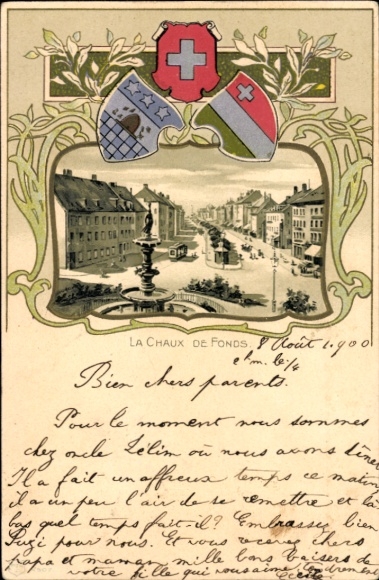 LA CHAUX DE FONDS. 8 Août 1900
2 h m. le 1/4
Bien chers parents.
Pour le moment nous sommes
chez oncle Zélim où nous avons dîné
Il a fait un affreux temps ce matin
il a un peu l'air de se remettre et là
bas quel temps fait-il? Embrassez bien
Suzi pour nous. Et vous recevez chers
papa et maman mille bons baisers de
votre fille qui vous aime tendrement